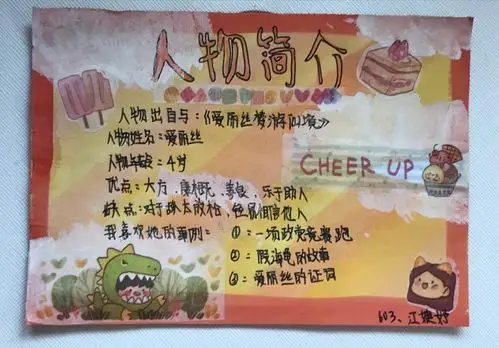 人物简介
人物出自与:《爱丽丝梦游仙境》
人物姓名:爱丽丝
人物年龄:4岁
CHEER UP
优点:大方、康概、善良、乐于助人
缺点:对于陌太放松,轻易相信他人
我喜欢她的事例:①:一场政党竞赛跑
②:假海龟的故事
③:爱丽丝的证词
603、江婕妤